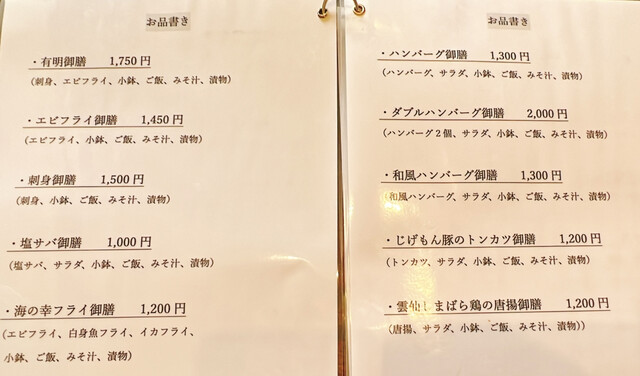 お品書き
・有明御膳 1,750円
(刺身、エビフライ、小鉢、ご飯、みそ汁、漬物)
・エビフライ御膳 1,450円
(エビフライ、小鉢、ご飯、みそ汁、漬物)
・刺身御膳 1,500円
(刺身、小鉢、ご飯、みそ汁、漬物)
・塩サバ御膳 1,000円
(塩サバ、サラダ、小鉢、ご飯、みそ汁、漬物)
・海の幸フライ御膳 1,200円
(エビフライ、白身魚フライ、イカフライ、
小鉢、ご飯、みそ汁、漬物)
お品書き
・ハンバーグ御膳 1,300円
(ハンバーグ、サラダ、小鉢、ご飯、みそ汁、漬物)
・ダブルハンバーグ御膳 2,000円
(ハンバーグ２個、サラダ、小鉢、ご飯、みそ汁、漬物)
・和風ハンバーグ御膳 1,300円
(和風ハンバーグ、サラダ、小鉢、ご飯、みそ汁、漬物)
・じげもん豚のトンカツ御膳 1,200円
(トンカツ、サラダ、小鉢、ご飯、みそ汁、漬物)
・雲仙しまばら鶏の唐揚御膳 1,200円
(唐揚、サラダ、小鉢、ご飯、みそ汁、漬物))